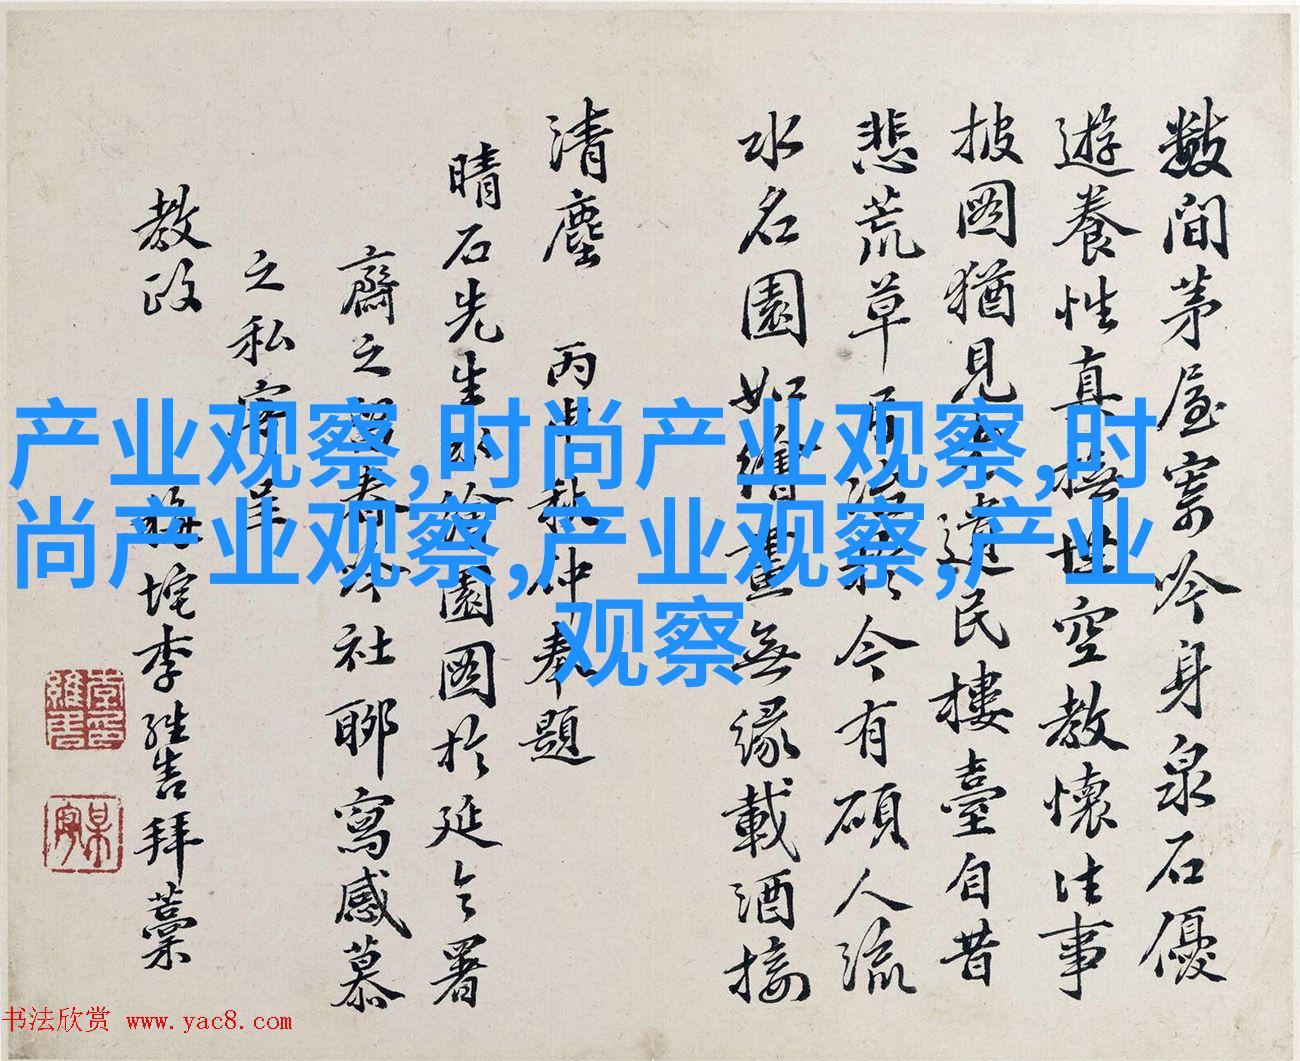 數間茅屋寄吟身泉石優
遊養性真撫世空教懷往事
披圖猶見遺民樓臺自昔
悲荒草今有碩人流
水名園如繪畫無緣載酒接
清塵 丙申秋仲奉題
晴石先生園圖於延令署
齋之社聊寫感慕
之私寄呈
教政 梅垞李維告拜藁
产业观察,时尚产业观察,时
尚产业观察,产业观察,产业
观察
书法欣赏 www.yac8.com